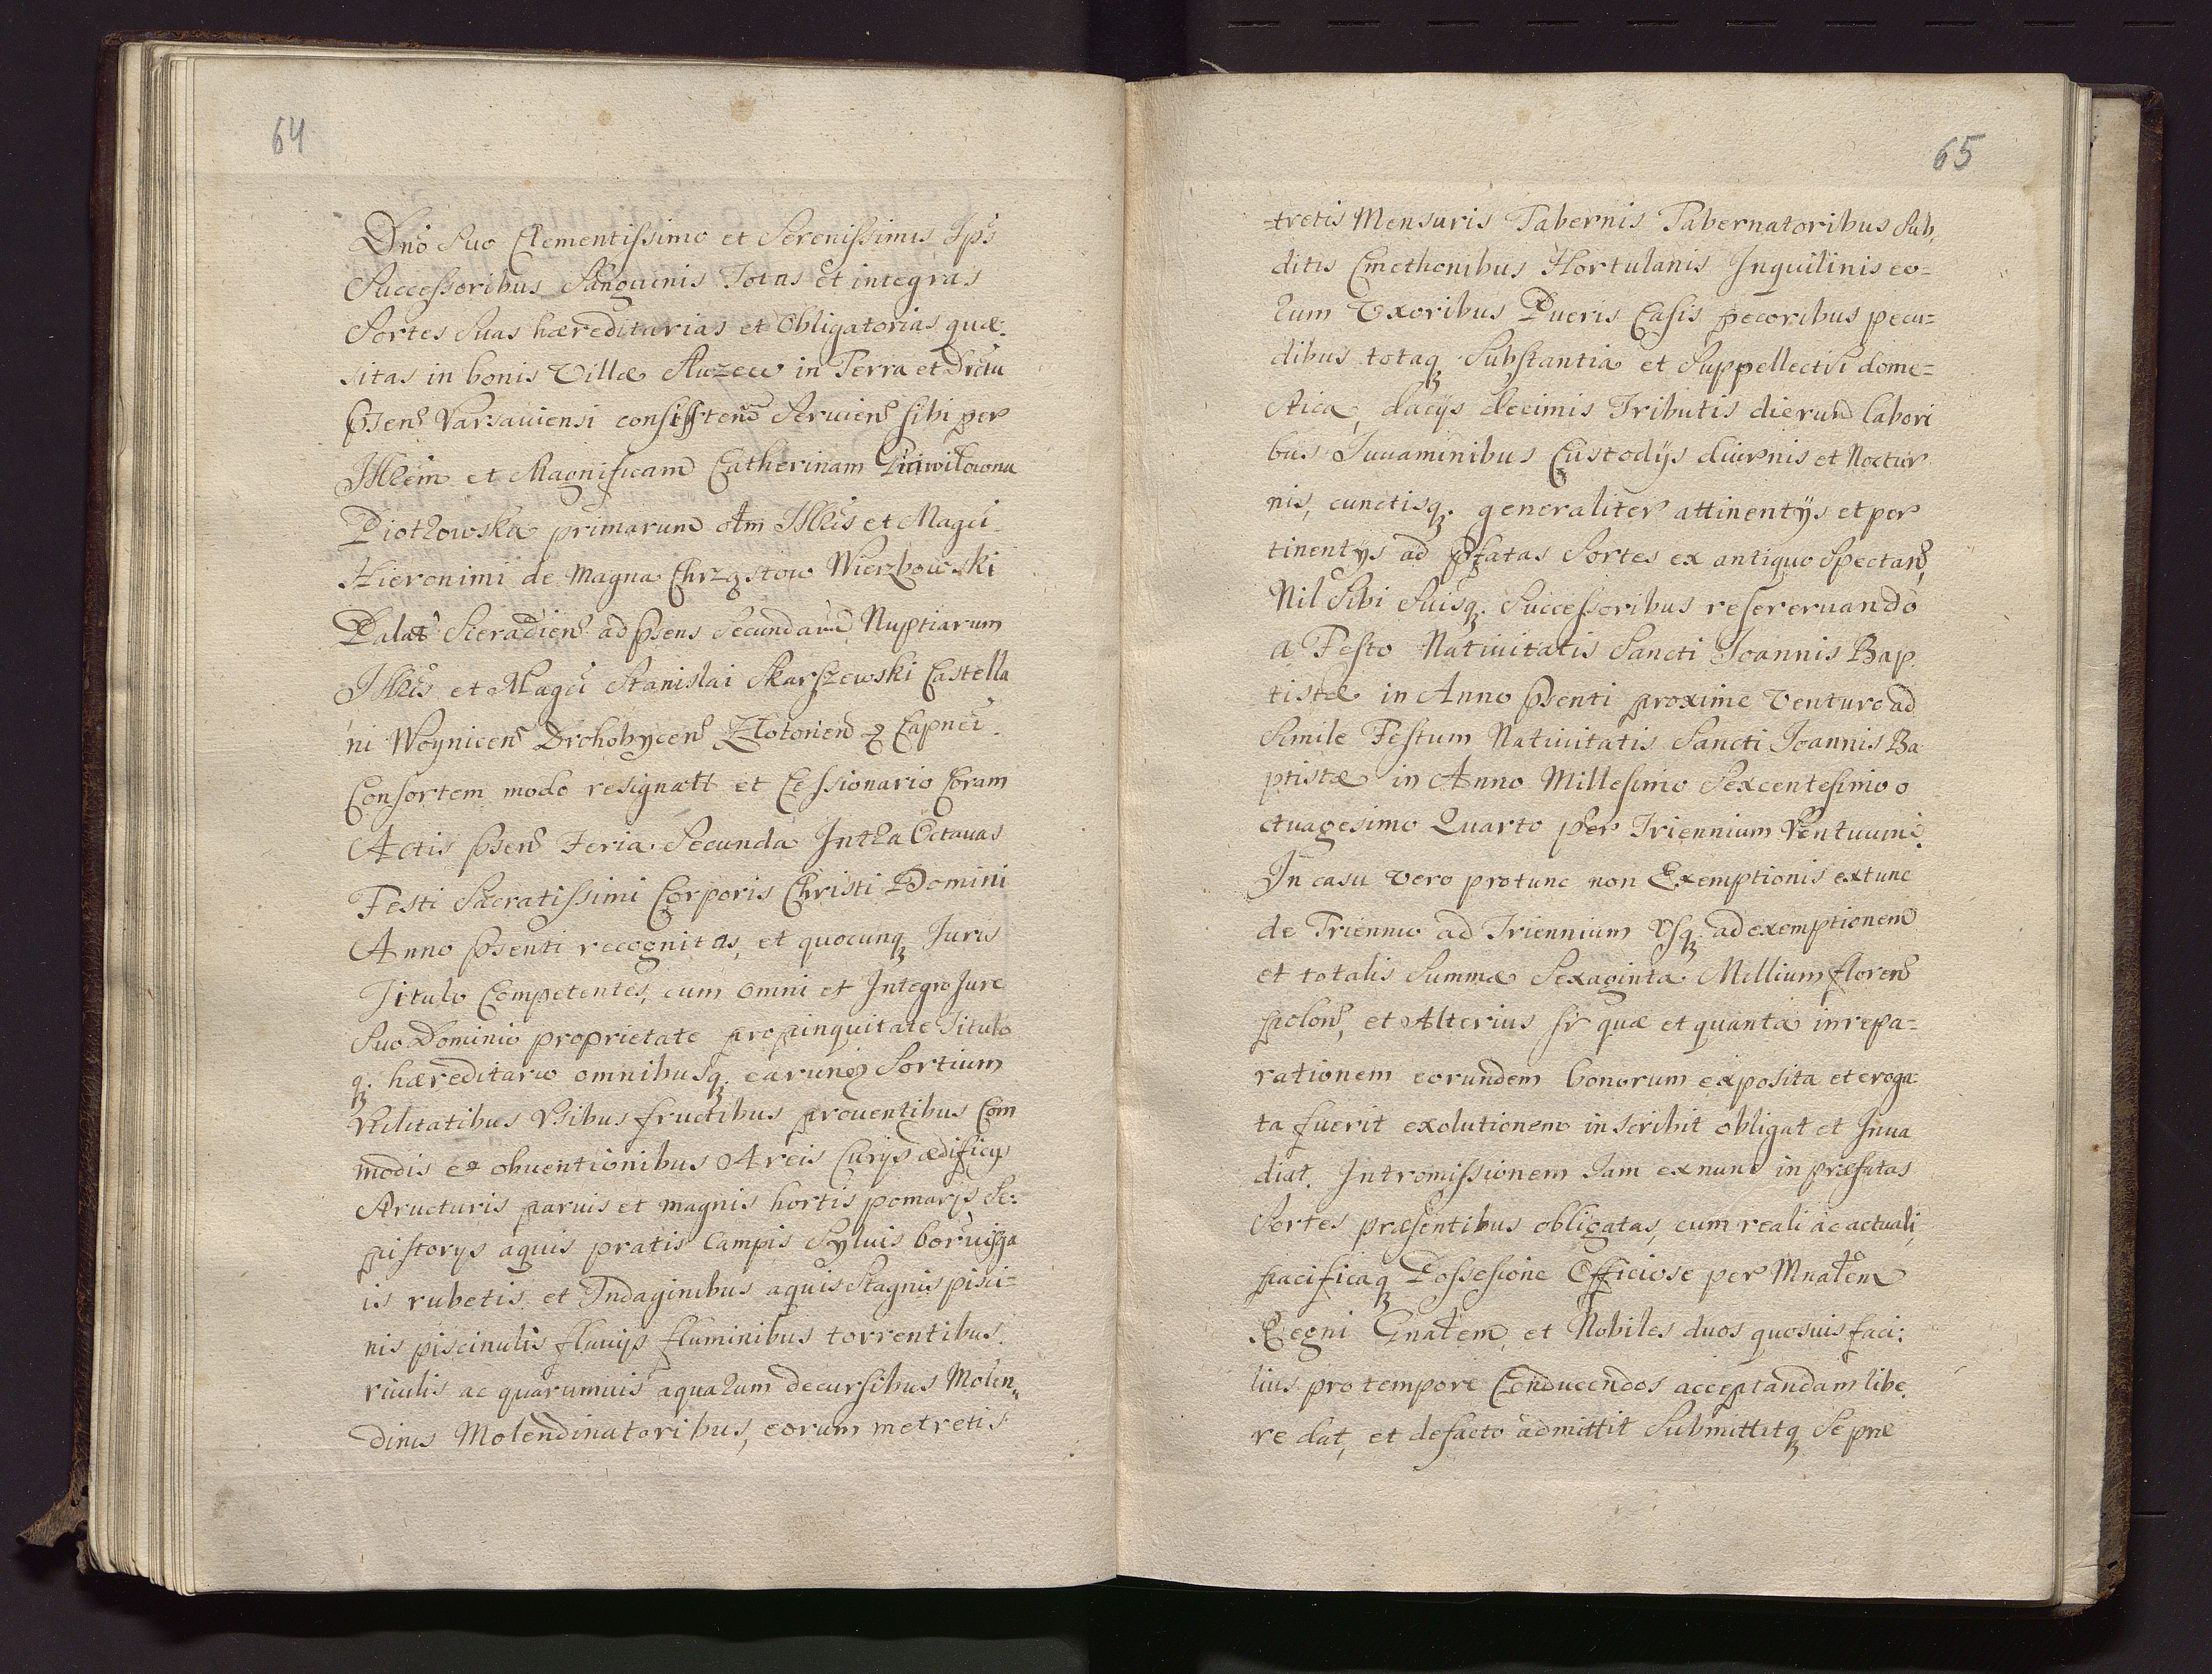 64
Dno Suo Clementissimo et Serenissimis Ips
Successoribus Sanguinis Totas et integras
Sortes Suas hæreditarias et Obligatorias quæ-
sitas in bonis Villæ Sluzew in Terra et Drctu
psen Varsaviensi consisten Servien sibi per
Illem et Magnificam Catherinam
Piotrowska primarum olim Illis et Magci
Hieronimi de Magna Chrząstow Wierzbowski
Palat Sieradien ad psens Secundarum Nuptiarum
Illis et Magci Stanislai Skarszewski Castella
ni Woynicen Drohobycen Zlotorien & Capnei
Consortem modo resignatt et Cessionario Coram
Actis psen Feria Secunda Intra Octavas
Festi Sacratissimi Corporis Christi Domini
Anno psenti recognitas, et quocunq Juris
Titulo Competentes, cum omni et Integro Jure
Suo Dominio proprietate propinquitate Titulo
q. hæreditario omnibusq. earund Sortium
Vtilitatibus Vsibus fructibus proventibus Com
modis et obventionibus Areis Curijs ædificijs
Structuris parvis et magnis hortis pomarijs Se-
pistorijs aquis pratis Campis Sylvis borris ga
is rubetis et Indaginibus aquis Stagnis pisci-
nis piscinulis fluvijs fluminibus torrentibus
rivulis ac quarumvis aquarum decursibus Molen-
dinis Molendinatoribus, eorum metretis
65
tretis Mensuris Tabernis Tabernatoribus Sub-
ditis Cmethonibus Hortulanis Inquilinis eo-
rum Vxoribus Pueris Casis pecoribus pecu-
dibus totaq. Substantia et Suppellectili dome-
stica, dacijs decimis Tributis dierum labori
bus Iuvaminibus Custodijs diurnis et Noctur
nis, cunctisq. generaliter attinentijs et per
tinentijs ad pfatas Sortes ex antiquo Spectan,
Nil Sibi Suisq. Successoribus resereruando
a Festo Nativitatis Sancti Joannis Bap
tistæ in Anno psenti proxime Venturo ad
Simile Festum Nativitatis Sancti Joannis Ba
ptistæ in Anno Millesimo Sexcentesimo o
ctuagesimo Quarto per Triennium Ventuum.
In casu vero protunc non Exemptionis extunc
de Triennio ad Triennium Vsq. ad exemptionem
et totalis Summæ Sexaginta Millium floren
polon, et Alterius sr quæ et quanta in repa-
rationem eorundem bonorum exposita et eroga
ta fuerit exolutionem inscribit obligat et Inva
diat. Intromissionem Jam ex nunc in præfatas
Sortes præsentibus obligatas, cum reali ac actuali,
pacificaq Possesione Officiose per Mnałem
Regni Gnałem, et Nobiles duos quosvis faci-
lius pro tempore Conducendos acceptandam libe
re dat, et defacto admittit Submittitq Se præ